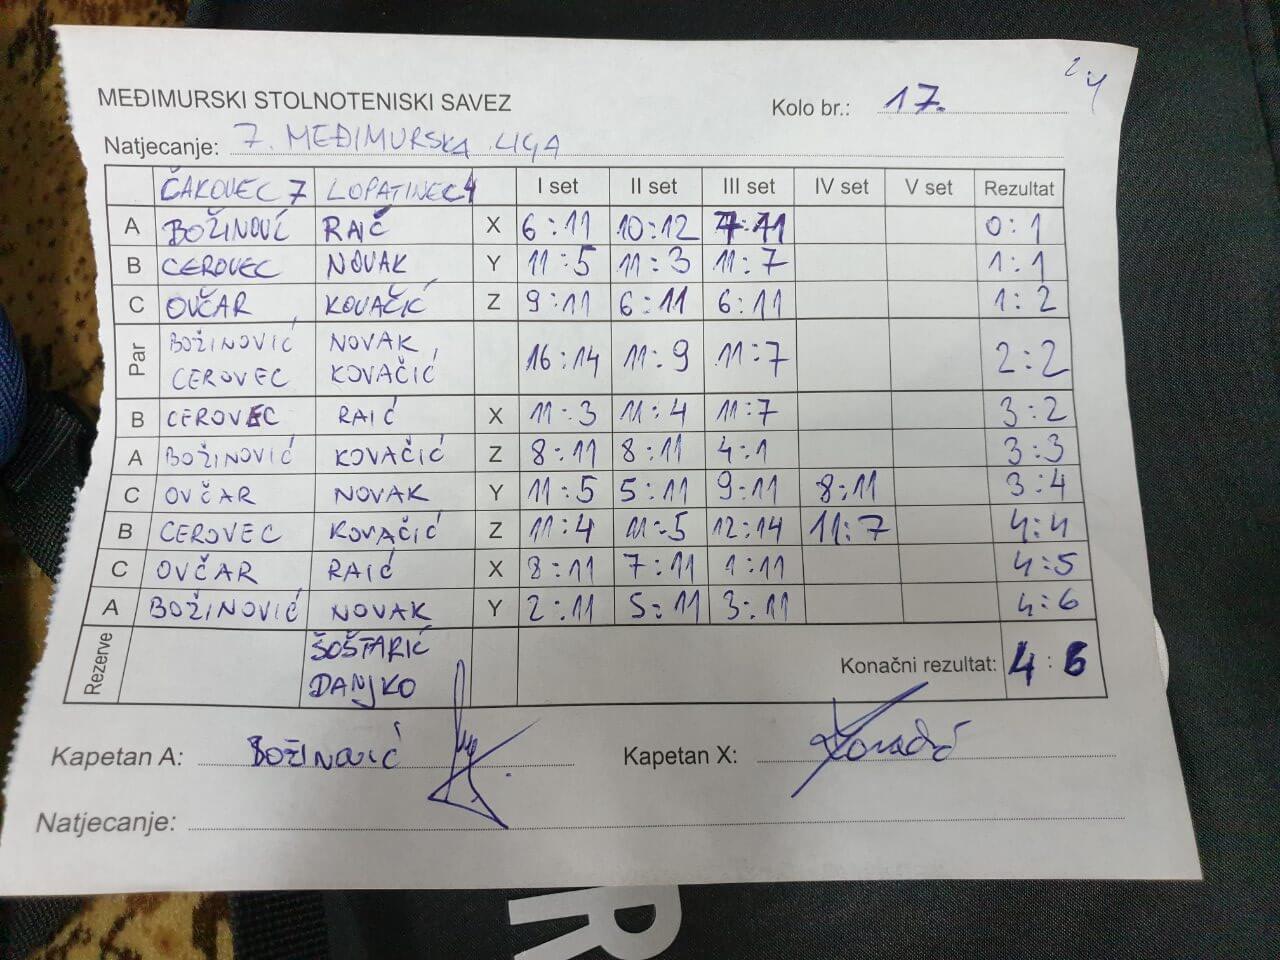 2:4
MEĐIMURSKI STOLNOTENISKI SAVEZ
Kolo br.: 17.
Natjecanje: 7. MEĐIMURSKA LIGA
ČAKOVEC 7 LOPATINEC 4 I set II set III set IV set V set Rezultat
A BOŽINOVIĆ RAIĆ X 6:11 10:12 7:11 0:1
B CEROVEC NOVAK Y 11:5 11:3 11:7 1:1
C OVČAR KOVAČIĆ Z 9:11 6:11 6:11 1:2
Par BOŽINOVIĆ NOVAK 16:14 11:9 11:7 2:2
CEROVEC KOVAČIĆ
B CEROVEC RAIĆ X 11:3 11:4 11:7 3:2
A BOŽINOVIĆ KOVAČIĆ Z 8:11 8:11 4:1 3:3
C OVČAR NOVAK Y 11:5 5:11 9:11 8:11 3:4
B CEROVEC KOVAČIĆ Z 11:4 11:5 12:14 11:7 4:4
C OVČAR RAIĆ X 8:11 7:11 1:11 4:5
A BOŽINOVIĆ NOVAK Y 2:11 5:11 3:11 4:6
Rezerve ŠOŠTARIĆ
DANJKO
Konačni rezultat: 4:6
Kapetan A: BOŽINOVIĆ
Kapetan X:
Natjecanje:
R